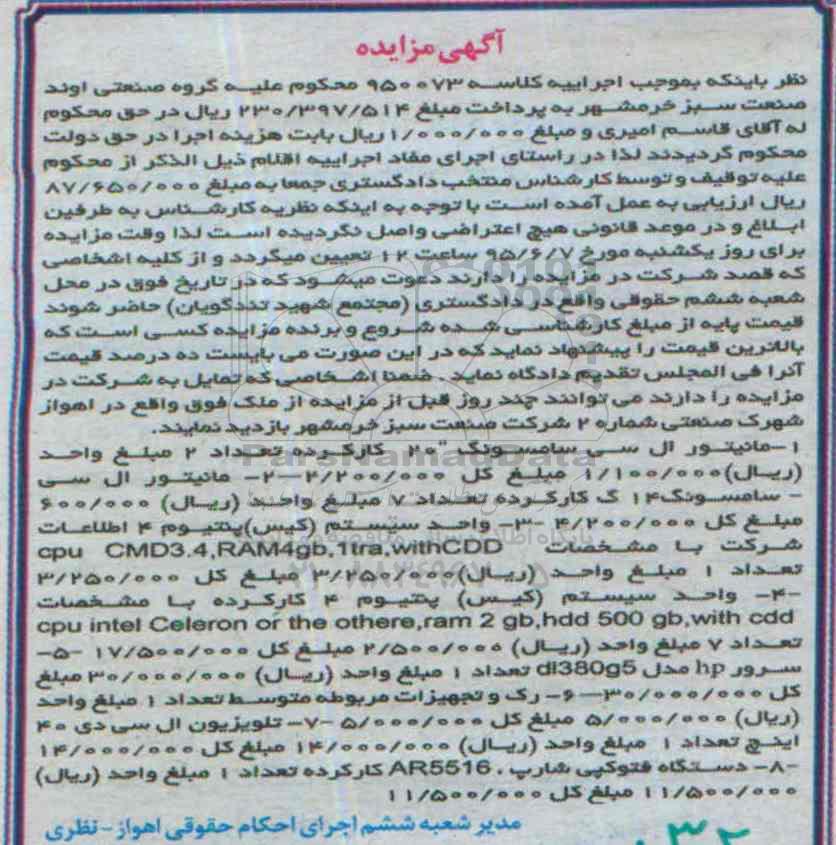 آگهی مزایده
نظر باینکه بموجب اجراییه کلاسه ۹۵۰۰۷۳ محکوم علیه گروه صنعتی اوند
صنعت سبز خرمشهر به پرداخت مبلغ ۲۳۰/۳۹۷/۵۱۴ ریال در حق محکوم
له آقای قاسم امیری و مبلغ ۱/۰۰۰/۰۰۰ ریال بابت هزینه اجرا در حق دولت
محکوم گردیدند لذا در راستای اجرای مفاد اجراییه اقلام ذیل الذکر از محکوم
علیه توقیف و توسط کارشناس منتخب دادگستری جمعا به مبلغ ۸۷/۶۵۰/۰۰۰
ریال ارزیابی به عمل آمده است با توجه به اینکه نظریه کارشناس به طرفین
ابلاغ و در موعد قانونی هیچ اعتراضی واصل نگردیده است لذا وقت مزایده
برای روز یکشنبه مورخ ۹۵/۶/۷ ساعت ۱۲ تعیین میگردد و از کلیه اشخاصی
که قصد شرکت در مزایده را دارند دعوت میشود که در تاریخ فوق در محل
شعبه ششم حقوقی واقع در دادگستری (مجتمع شهید تندگویان) حاضر شوند
قیمت پایه از مبلغ کارشناسی شده شروع و برنده مزایده کسی است که
بالاترین قیمت را پیشنهاد نماید که در این صورت می بایست ده درصد قیمت
آنرا فی المجلس تقدیم دادگاه نماید . ضمنا اشخاصی که تمایل به شرکت در
مزایده را دارند می توانند چند روز قبل از مزایده از ملک فوق واقع در اهواز
شهرک صنعتی شماره ۲ شرکت صنعت سبز خرمشهر بازدید نمایند.
۱-مانیتور ال سی سامسونگ "۲۰ کارکرده تعداد ۲ مبلغ واحد
(ریال)۱/۱۰۰/۰۰۰ مبلغ کل ۲/۲۰۰/۰۰۰-۲- مانیتور ال سی
- سامسونگ۱۴ گ کارکرده تعداد ۷ مبلغ واحد (ریال) ۶۰۰/۰۰۰
مبلغ کل ۴/۲۰۰/۰۰۰ -۳- واحد سیستم (کیس)پنتیوم ۴ اطلاعات
شرکت با مشخصات cpu CMD3.4,RAM4gb,1tra,withCDD
تعداد ۱ مبلغ واحد (ریال)۳/۲۵۰/۰۰۰ مبلغ کل ۳/۲۵۰/۰۰۰
-۴- واحد سیستم (کیس) پنتیوم ۴ کارکرده با مشخصات
cpu intel Celeron or the othere,ram 2 gb,hdd 500 gb,with cdd
تعداد ۷ مبلغ واحد (ریال) ۲/۵۰۰/۰۰۰ مبلغ کل ۱۷/۵۰۰/۰۰۰ -۵-
سرور hp مدل dl380g5 تعداد ۱ مبلغ واحد (ریال) ۳۰/۰۰۰/۰۰۰ مبلغ
کل ۳۰/۰۰۰/۰۰۰-۶- رک و تجهیزات مربوطه متوسط تعداد ۱ مبلغ واحد
(ریال) ۵/۰۰۰/۰۰۰ مبلغ کل ۵/۰۰۰/۰۰۰ -۷- تلویزیون ال سی دی ۴۰
اینچ تعداد ۱ مبلغ واحد (ریال) ۱۴/۰۰۰/۰۰۰ مبلغ کل ۱۴/۰۰۰/۰۰۰
-۸- دستگاه فتوکپی شارپ . AR5516 کارکرده تعداد ۱ مبلغ واحد (ریال)
۱۱/۵۰۰/۰۰۰ مبلغ کل ۱۱/۵۰۰/۰۰۰
مدیر شعبه ششم اجرای احکام حقوقی اهواز - نظری
ParsNamadData